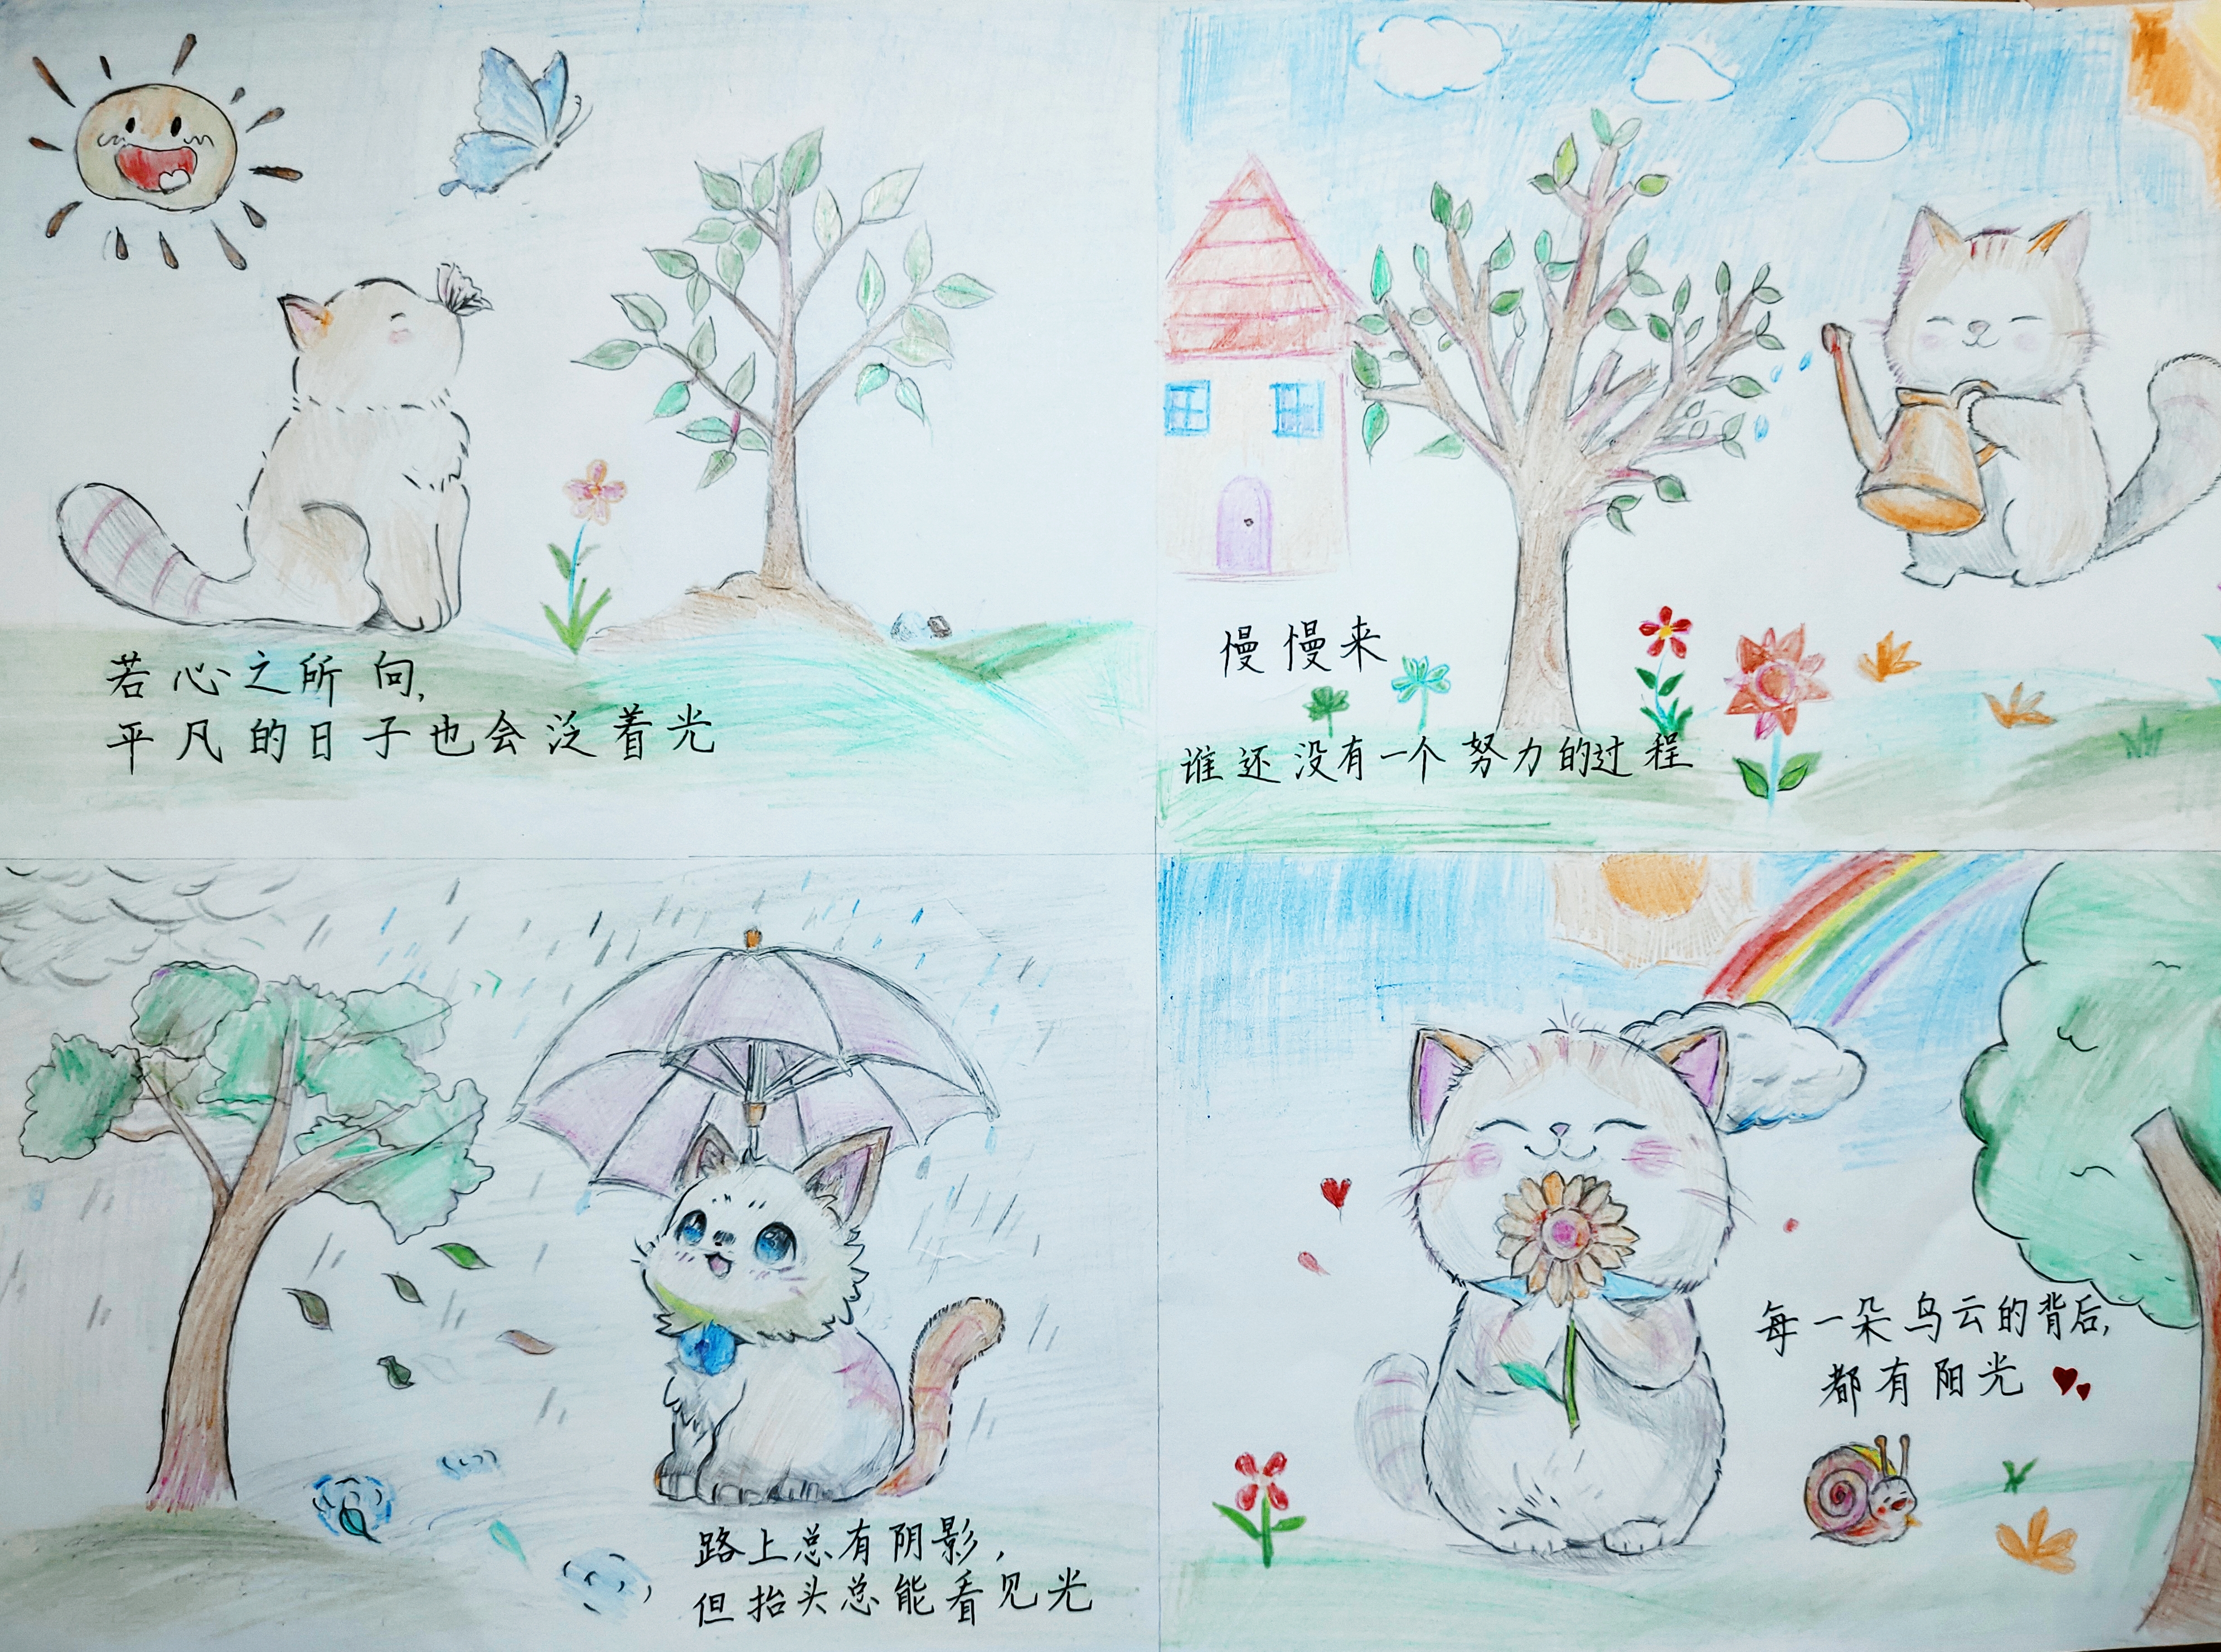 若心之所向,
平凡的日子也会泛着光
慢慢来
谁还没有一个努力的过程
路上总有阴影,
但抬头总能看见光
每一朵乌云的背后,
都有阳光